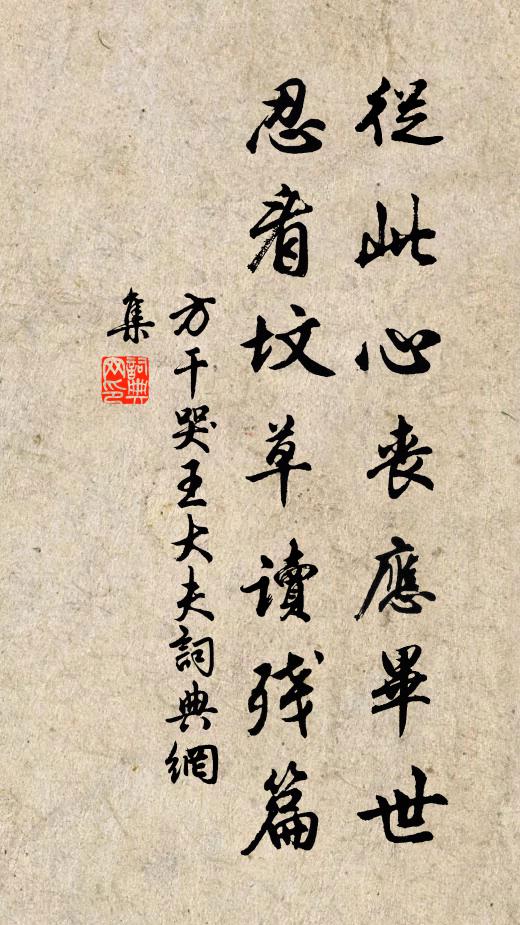 從此心喪應畢世
忍看坟草讀残篇
方干哭王大夫詞典網
集
詞典
网印